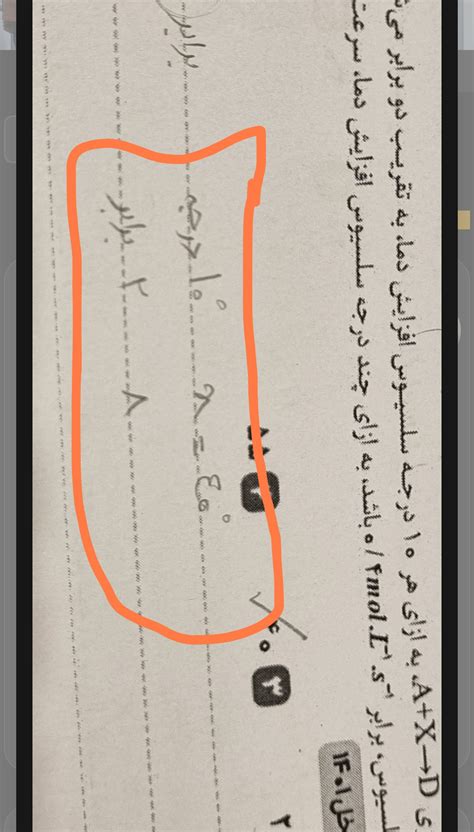 ی A+X→D، به ازای هر ۱۰ درجه سلسیوس افزایش دما، به تقریب دو برابر می‌ش
لسیوس، برابر ۰/۴mol.L⁻¹.s⁻¹ باشد، به ازای چند درجه سلسیوس افزایش دما، سرعت
خل ۱۴۰۱
۲ ۸۵
۳ ۴۰
۱۰° درجه x = ۴۰°
۲ برابر ۸
برابر